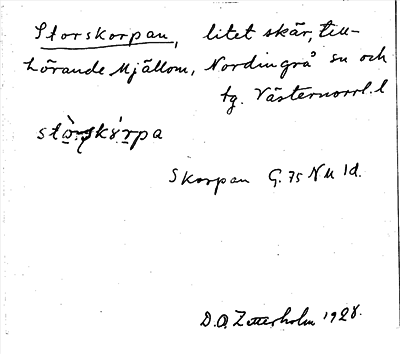 Storskorpan, litet skär, till-
hörande Mjällom, Nordingrå sn och
tg. Västernorrl. l
Skorpan G. 75 NM Id.
D.O. Zetterholm 1928.